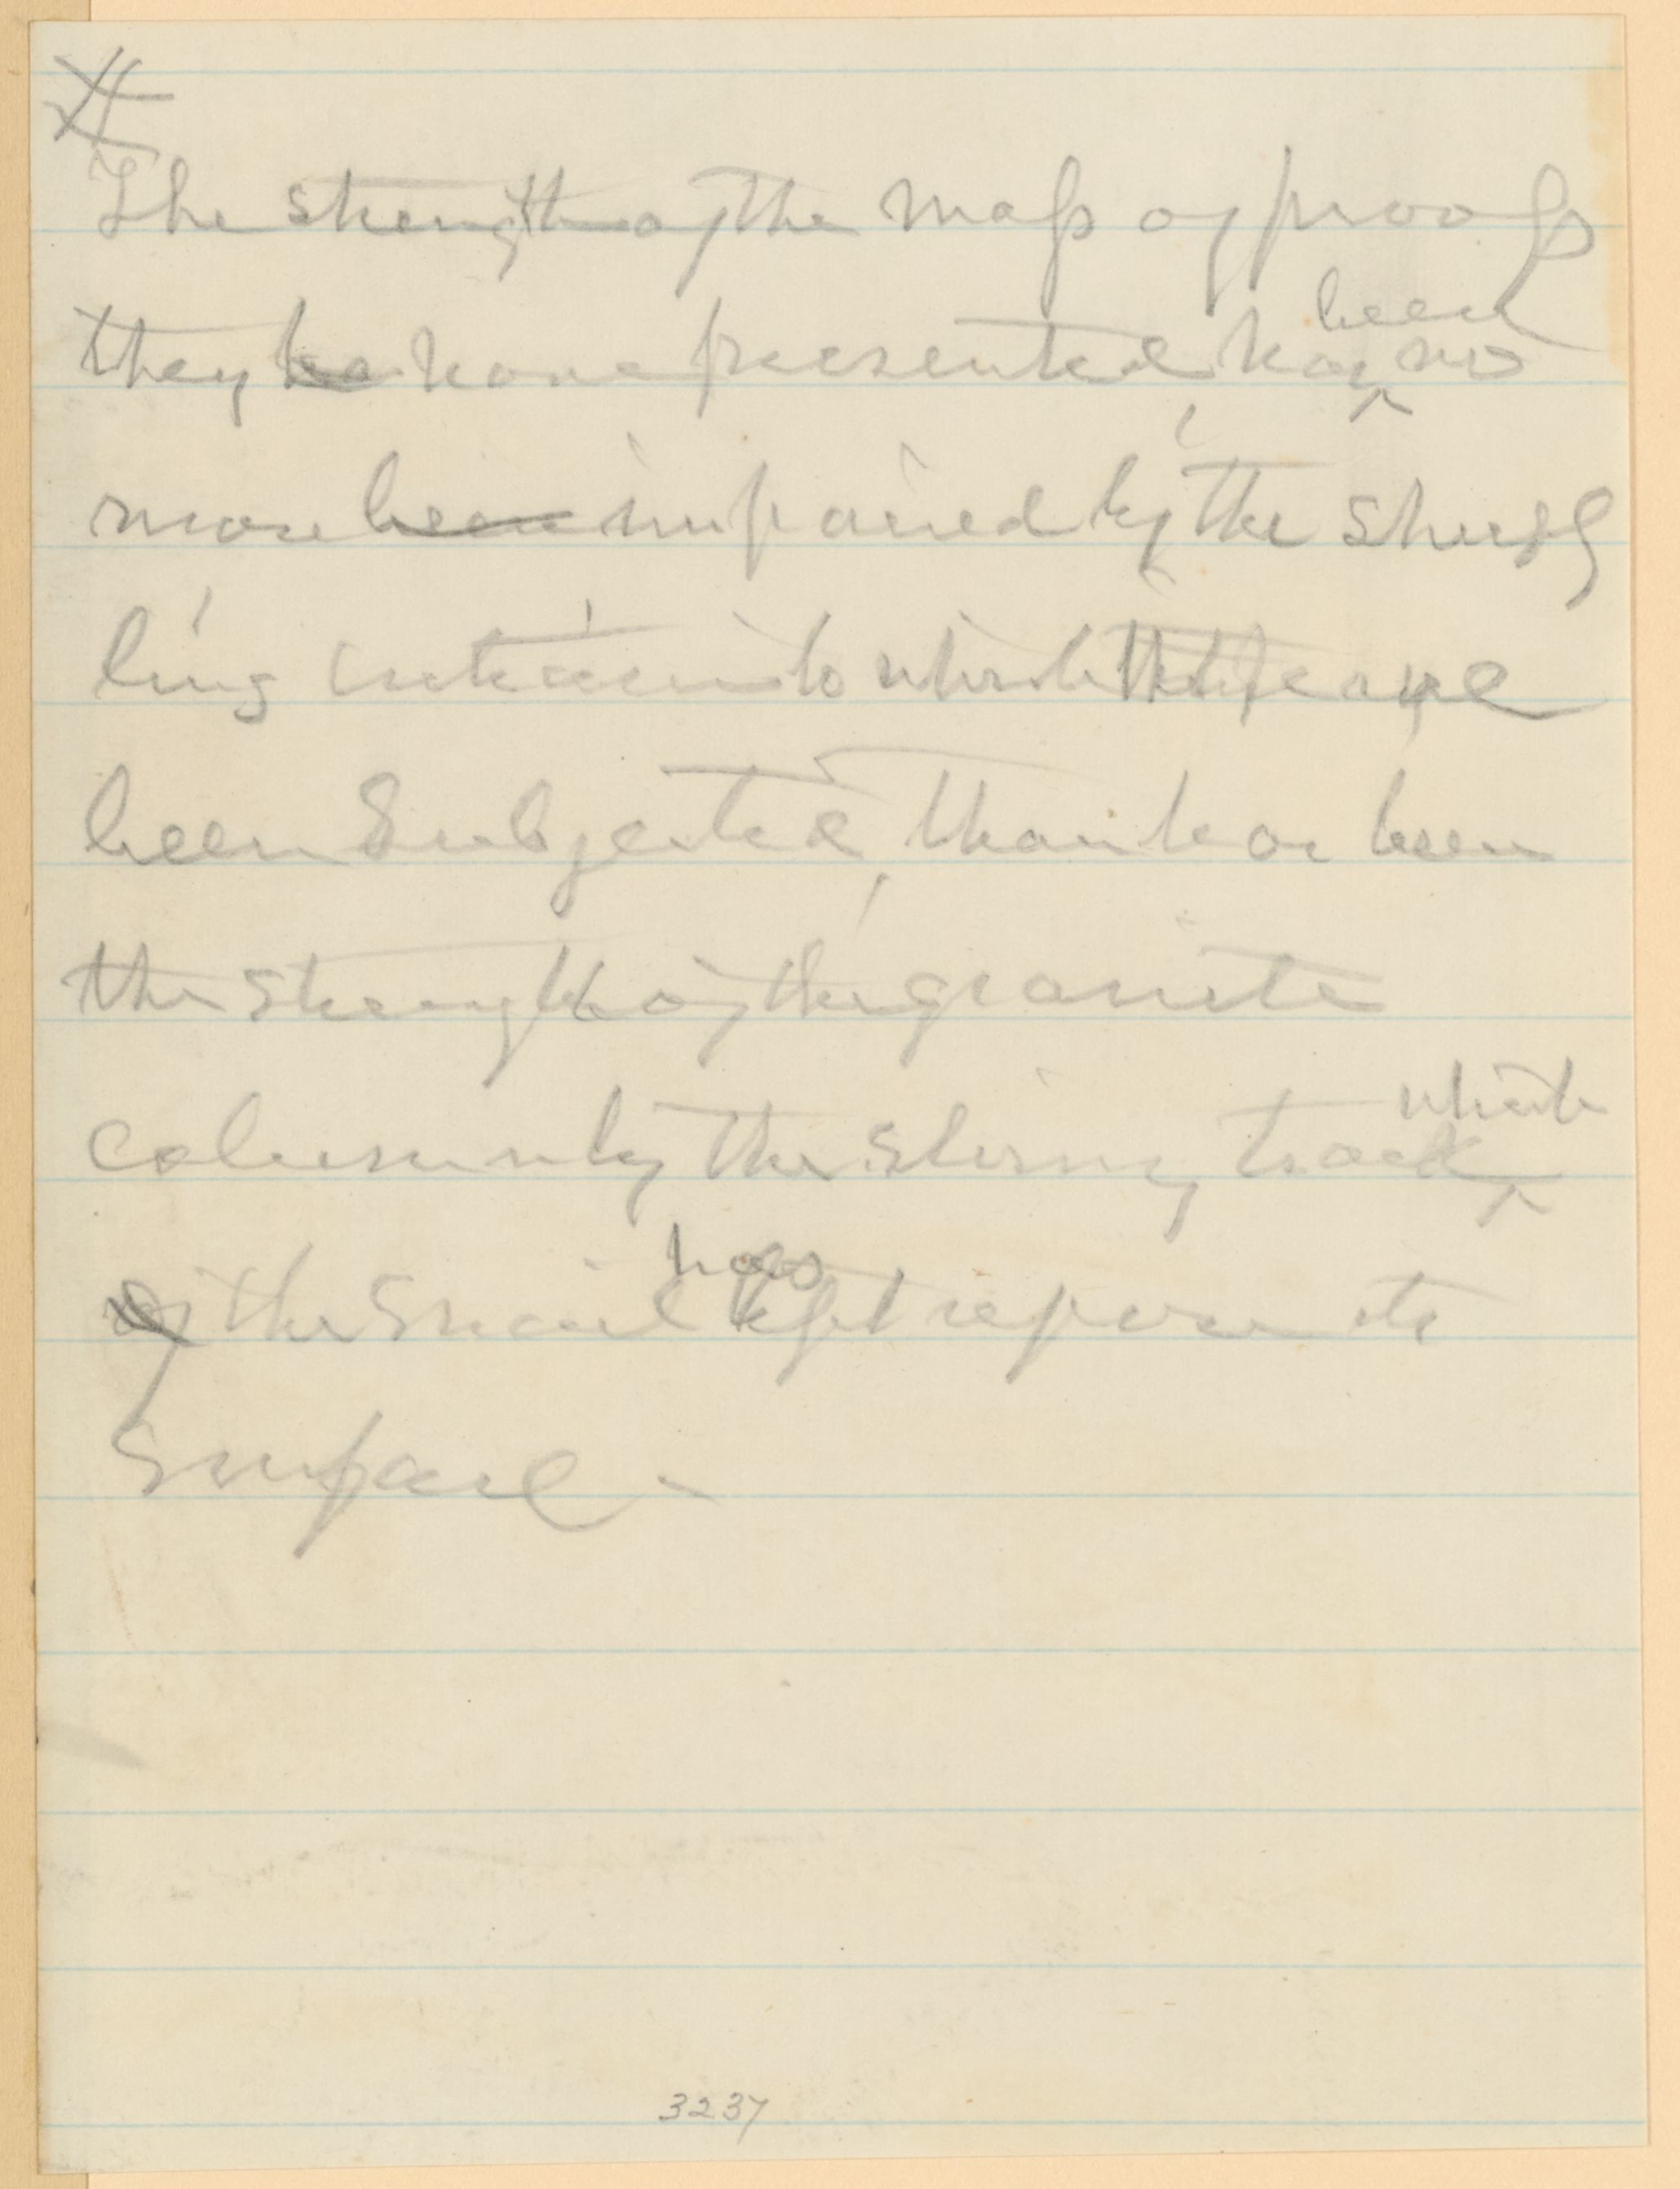 The strength of the mass of proofs
they ha have presented has been no
more been impaired by the shuff
ling criticism to which they have
been subjected, than has been
the strength of the granite
column by the slimy track which
of the snail has left upon its
surface -
3237